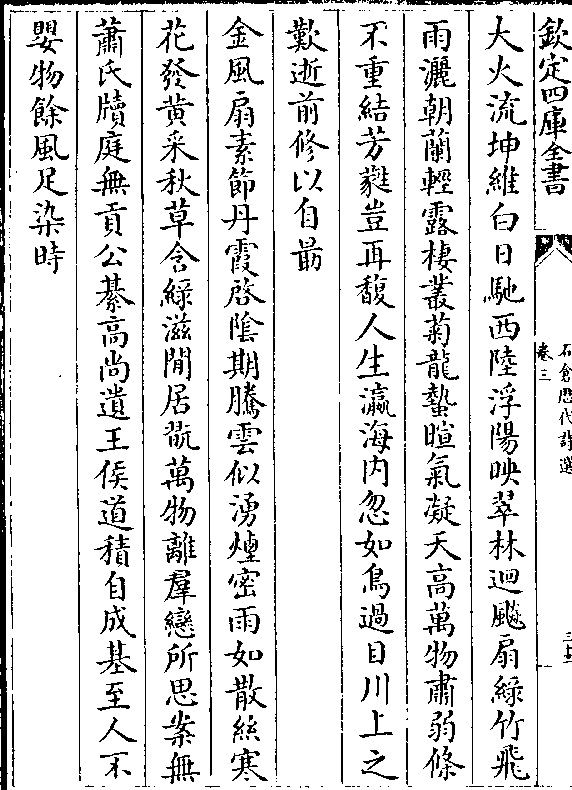 欽定四庫全書
石倉歷代詩選
卷三
大火流坤維白日馳西陸浮陽映翠林迴飈扇綠竹飛
雨灑朝蘭輕露棲叢菊龍蟄暄氣凝天高萬物肅弱條
不重結芳蕤豈再馥人生瀛海内忽如鳥過目川上之
歎逝前修以自勗
金風扇素節丹霞啓陰期騰雲似湧煙密雨如散絲寒
花發黄采秋草含綠滋閒居翫萬物離羣戀所思案無
蕭氏牘庭無貢公綦高尚遺王侯道積自成基至人不
嬰物餘風足染時